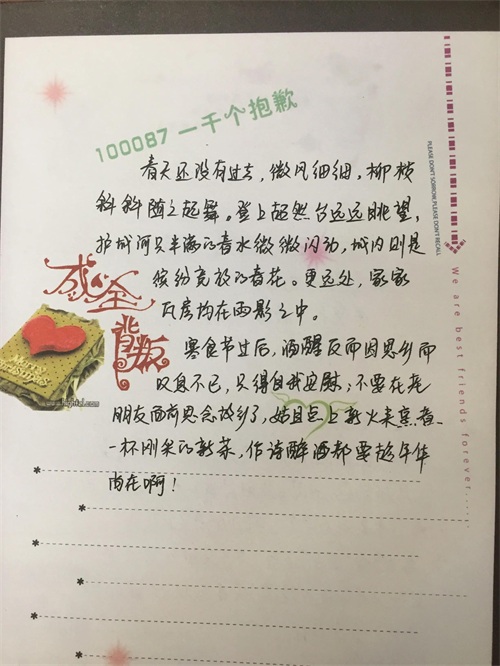 100087 一千个抱歉
PLEASE DON'T SORROW, PLEASE DON'T RECALL
春天还没有过去，微风细细，柳枝
斜斜随之起舞。登上超然台远远眺望，
护城河只半满的春水微微闪动，城内则是
缤纷竞放的春花。更远处，家家
瓦房均在雨影之中。
寒食节过后，酒醒反而因思乡而
叹息不已，只得自我安慰：不要在老
朋友面前思念故乡了，姑且点上新火来烹煮
一杯刚采的新茶，作诗醉酒都要趁年华
尚在啊！
成全
背叛
We are best friends forever...